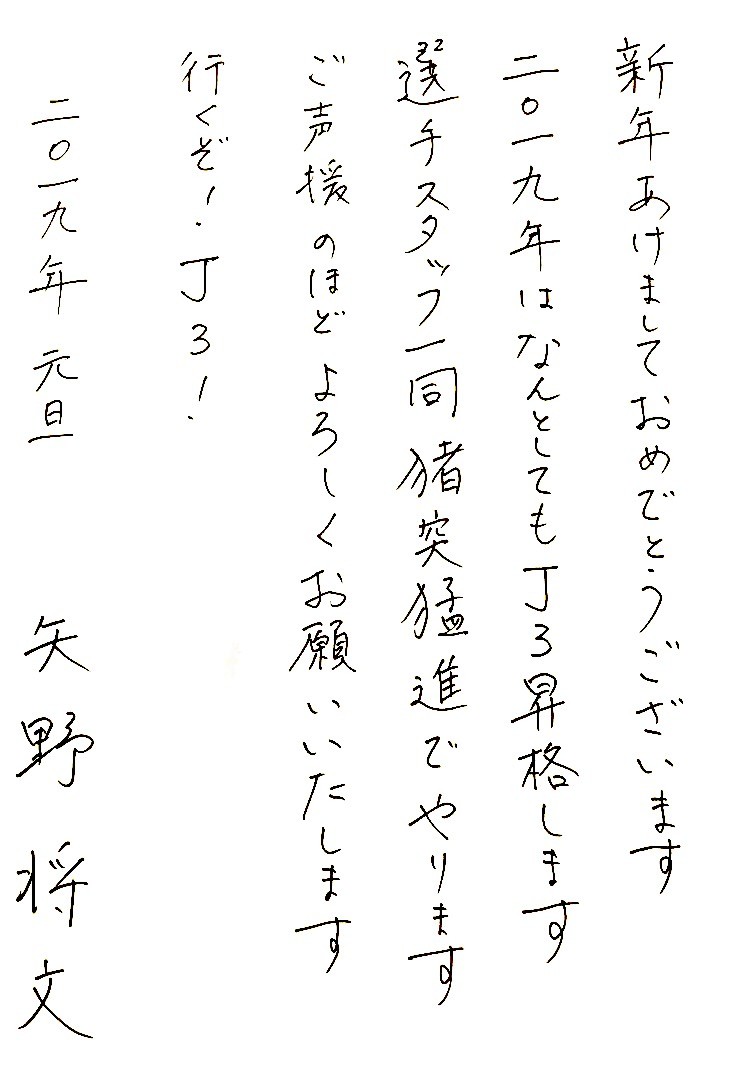 新年あけましておめでとうございます
二〇一九年はなんとしてもJ3昇格します
選手スタッフ一同猪突猛進でやります
ご声援のほどよろしくお願いいたします
行くぞ！J3！
二〇一九年元旦 矢野将文